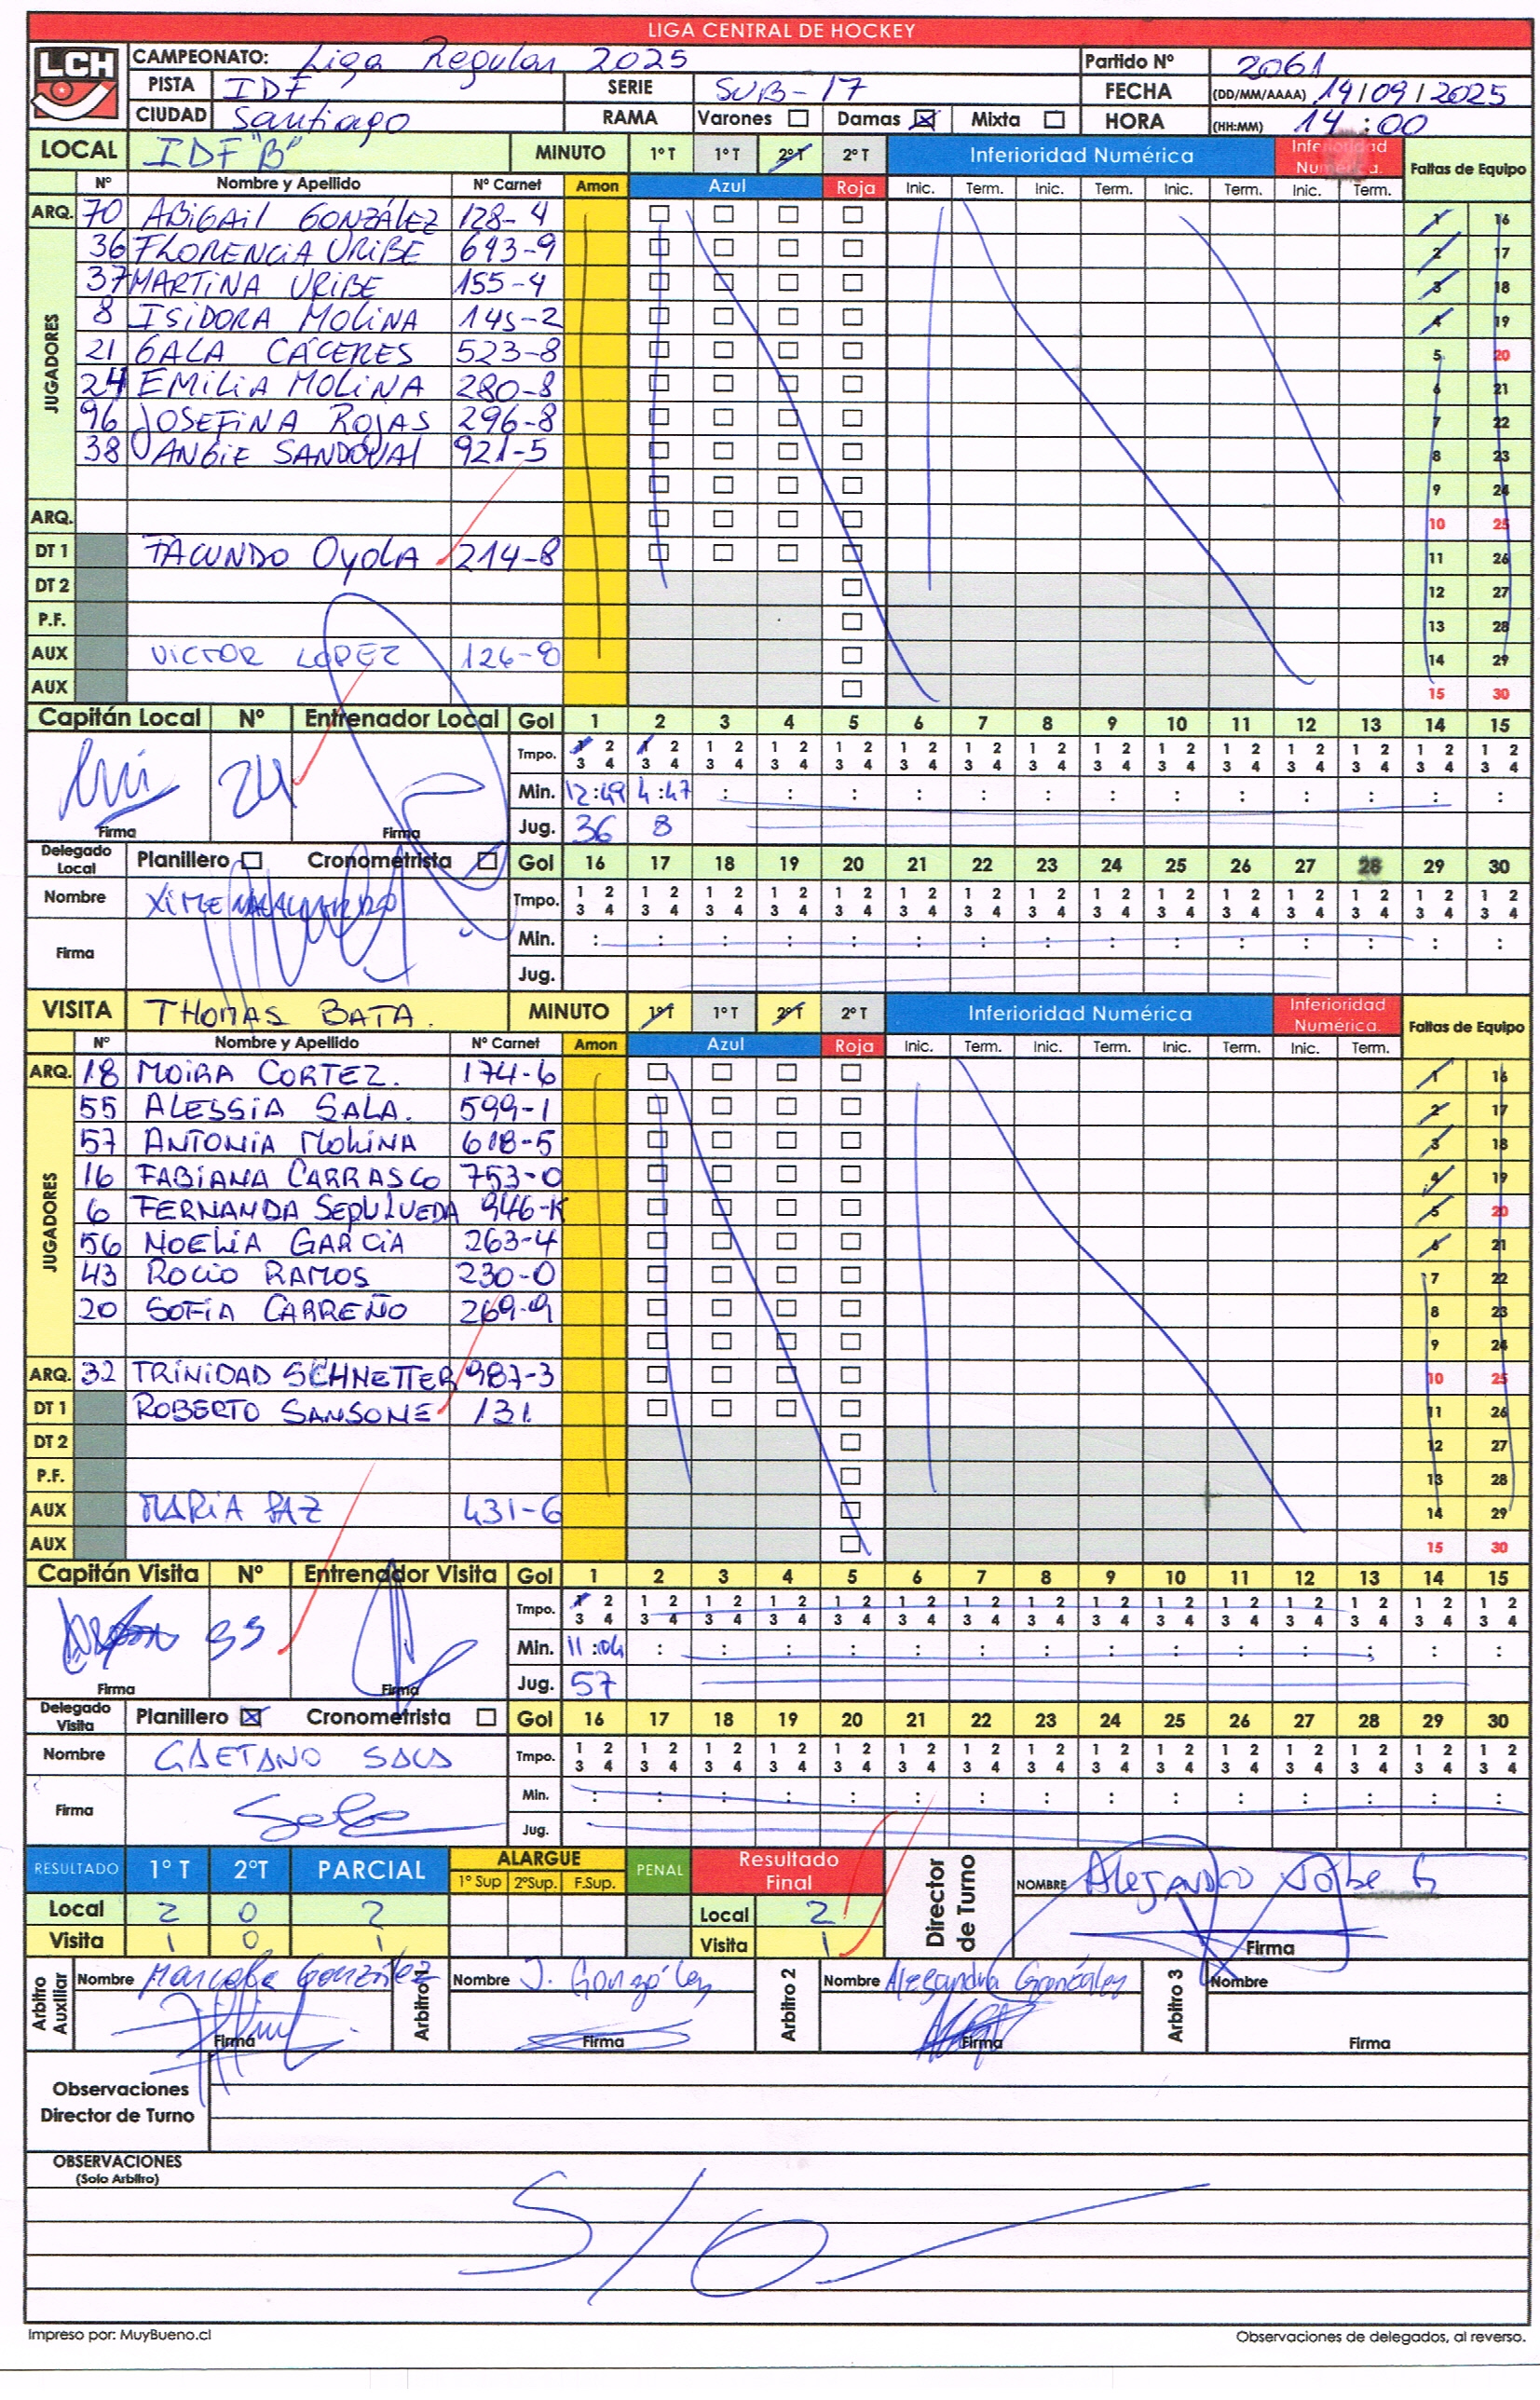 LIGA CENTRAL DE HOCKEY
LCH
CAMPEONATO: Liga Regular 2025 Partido Nº 2061
PISTA IDF SERIE SUB-17 FECHA (DD/MM/AAAA) 14/09/2025
CIUDAD Santiago RAMA Varones Damas Mixta HORA (HH:MM) 14:00
LOCAL IDF "B" MINUTO 1ºT 1ºT 2ºT 2ºT Inferioridad Numérica Inferioridad Numérica. Faltas de Equipo
Nº Nombre y Apellido Nº Carnet Amon Azul Roja Inic. Term. Inic. Term. Inic. Term. Inic. Term.
ARQ. 70 ABIGAIL GONZÁLEZ 128-4 1 16
JUGADORES
36 FLORENCIA URIBE 643-9 2 17
37 MARTINA URIBE 155-4 3 18
8 ISIDORA MOLINA 145-2 4 19
21 GALA CÁCERES 523-8 5 20
24 EMILIA MOLINA 280-8 6 21
96 JOSEFINA ROJAS 296-8 7 22
38 ANGIE SANDOVAL 921-5 8 23
9 24
ARQ. 10 25
DT 1 FACUNDO OYOLA 214-8 11 26
DT 2 12 27
P.F. 13 28
AUX VICTOR LOPEZ 126-8 14 29
AUX 15 30
Capitán Local Nº Entrenador Local Gol 1 2 3 4 5 6 7 8 9 10 11 12 13 14 15
Tmpo. 1 2 1 2 1 2 1 2 1 2 1 2 1 2 1 2 1 2 1 2 1 2 1 2 1 2 1 2 1 2
3 4 3 4 3 4 3 4 3 4 3 4 3 4 3 4 3 4 3 4 3 4 3 4 3 4 3 4 3 4
24 Min. 12:49 4:47 : : : : : : : : : : : : :
Firma Firma Jug. 36 8
Delegado Local Planillero Cronometrista Gol 16 17 18 19 20 21 22 23 24 25 26 27 28 29 30
Nombre XIMENA Tmpo. 1 2 1 2 1 2 1 2 1 2 1 2 1 2 1 2 1 2 1 2 1 2 1 2 1 2 1 2 1 2
3 4 3 4 3 4 3 4 3 4 3 4 3 4 3 4 3 4 3 4 3 4 3 4 3 4 3 4 3 4
Firma Min. : : : : : : : : : : : : : : :
Jug.
VISITA THOMAS BATA. MINUTO 1ºT 1ºT 2ºT 2ºT Inferioridad Numérica Inferioridad Numérica Faltas de Equipo
Nº Nombre y Apellido Nº Carnet Amon Azul Roja Inic. Term. Inic. Term. Inic. Term. Inic. Term.
ARQ. 18 MOIRA CORTEZ. 174-6 1 16
JUGADORES
55 ALESSIA SALA. 599-1 2 17
57 ANTONIA MOLINA 618-5 3 18
16 FABIANA CARRASCO 753-0 4 19
6 FERNANDA SEPULVEDA 946-K 5 20
56 NOELIA GARCIA 263-4 6 21
43 ROCIO RAMOS 230-0 7 22
20 SOFIA CARREÑO 269-9 8 23
9 24
ARQ. 32 TRINIDAD SCHNETTER 987-3 10 25
DT 1 ROBERTO SANSONE 131 11 26
DT 2 12 27
P.F. 13 28
AUX MARIA PAZ 431-6 14 29
AUX 15 30
Capitán Visita Nº Entrenador Visita Gol 1 2 3 4 5 6 7 8 9 10 11 12 13 14 15
Tmpo. 1 2 1 2 1 2 1 2 1 2 1 2 1 2 1 2 1 2 1 2 1 2 1 2 1 2 1 2 1 2
3 4 3 4 3 4 3 4 3 4 3 4 3 4 3 4 3 4 3 4 3 4 3 4 3 4 3 4 3 4
Min. 11:04 : : : : : : : : : : : : : :
Firma Firma Jug. 57
Delegado Visita Planillero Cronometrista Gol 16 17 18 19 20 21 22 23 24 25 26 27 28 29 30
Nombre GAETANO SALA Tmpo. 1 2 1 2 1 2 1 2 1 2 1 2 1 2 1 2 1 2 1 2 1 2 1 2 1 2 1 2 1 2
3 4 3 4 3 4 3 4 3 4 3 4 3 4 3 4 3 4 3 4 3 4 3 4 3 4 3 4 3 4
Firma Min. : : : : : : : : : : : : : : :
Jug.
RESULTADO 1º T 2ºT PARCIAL ALARGUE 1º Sup 2ºSup. F.Sup. PENAL Resultado Final Director de Turno NOMBRE Alejandro
Local 2 0 2 Local 2
Visita 1 0 1 Visita 1 Firma
Arbitro Auxiliar Nombre Marcela González Arbitro 1 Nombre J. González Arbitro 2 Nombre Alejandra González Arbitro 3 Nombre
Firma Firma Firma Firma
Observaciones
Director de Turno
OBSERVACIONES
(Solo Arbitro)
S/O
Impreso por: MuyBueno.cl Observaciones de delegados, al reverso.